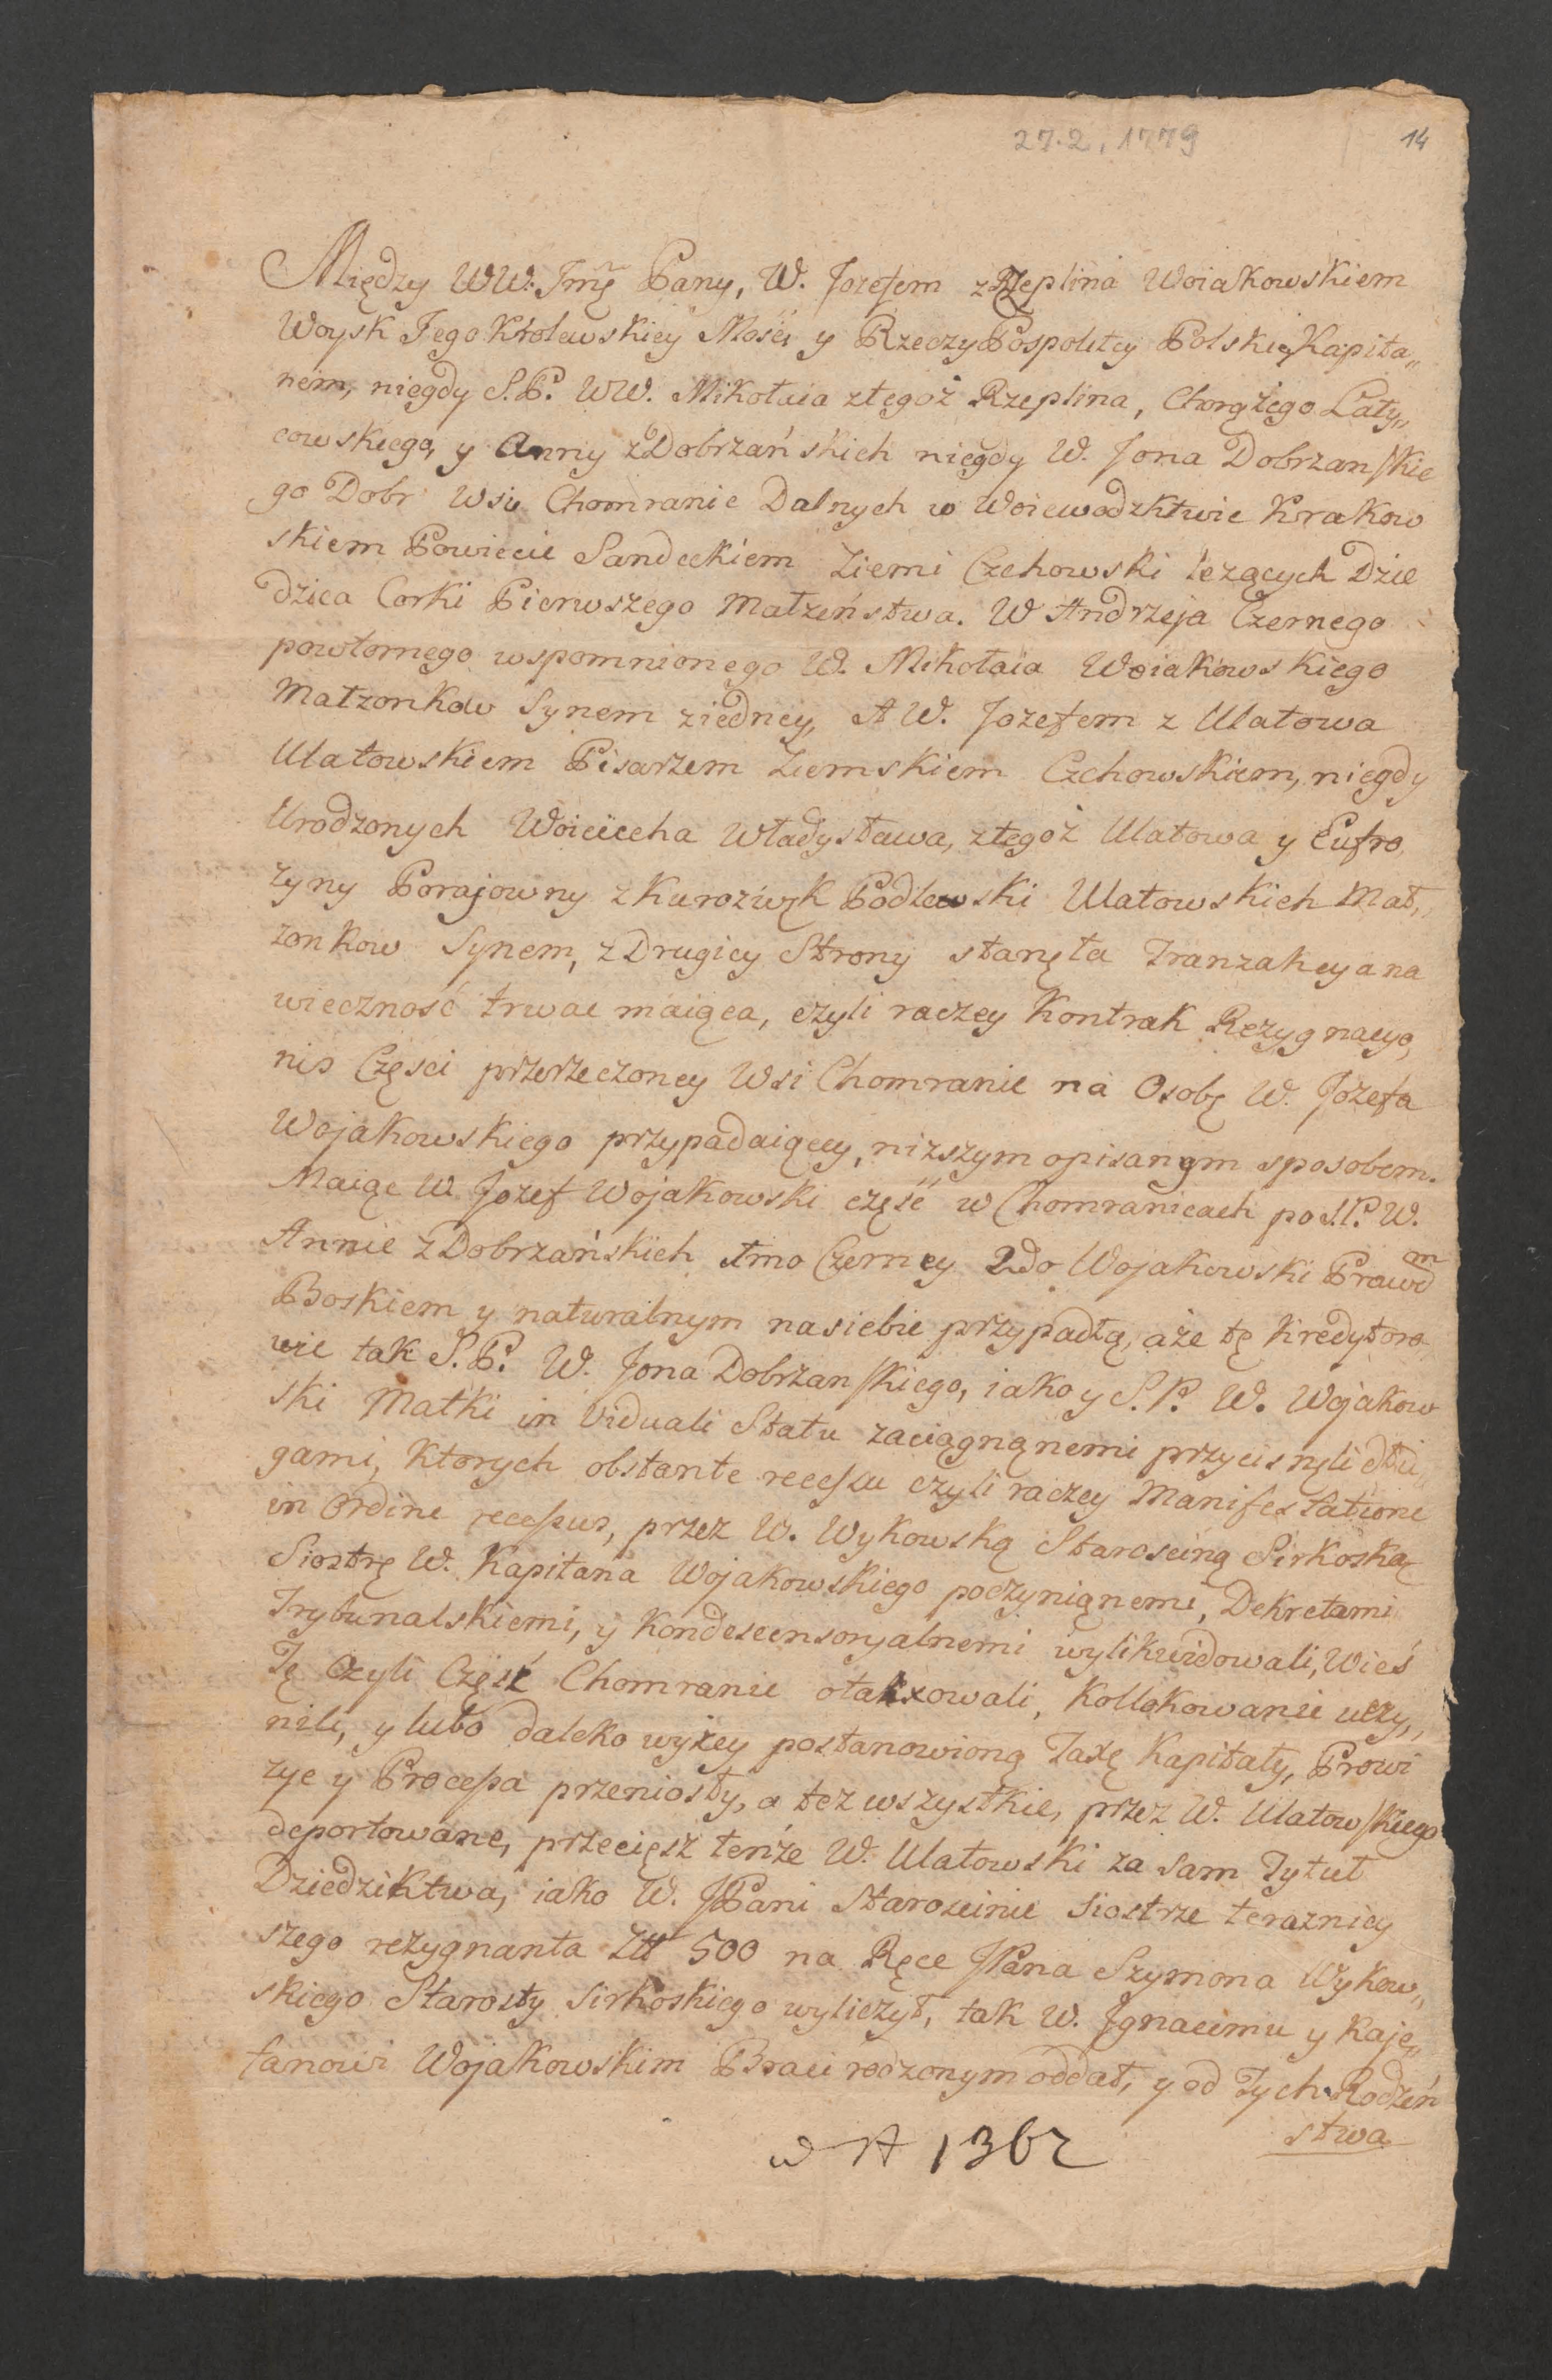 27.2.1779
14
Między WW. Jmę Pany, W. Jozefem z Rzeplina Woiakowskiem
Woysk Jego Krolewskiey Mości y Rzeczy Pospolitey Polskiey Kapita„
nem, niegdy S.P. WW. Mikołaia ztegoż Rzeplina, Chorążego Laty„
cowskiego, y Anny z Dobrzańskich niegdy W. Jona Dobrzanskie
go Dobr Wsiu Chomranic Dalnych w Woiewodzktwie Krakow
skiem Powiecie Sandeckiem Ziemi Czchowski leżących Dzie
dzica Corki Pierwszego Małżeństwa. W Andrzeja Czernego
powtornego wspomnionego W. Mikołaia Woiakowskiego
Małzonkow Synem ziedney, A W. Jozefem z Ulatowa
Ulatowskiem Pisarzem Ziemskiem Czchowskiem, niegdy
Urodzonych Woiciecha Władysława, ztegoż Ulatowa y Eufro
zyny Porajowny z Kurozwęk Podlewski Ulatowskich Mał„
zonkow Synem, z Drugiey Strony stanęła Tranzakcya na
wieczność trwać maiąca, czyli raczey Kontrak Rezygnacyo,
nis Części przerzeczoney Wsi Chomranic na Osobę W. Jozefa
Wojakowskiego przypadaiącey, niższym opisanym sposobem.
Maiąc W. Jozef Wojakowski część w Chomranicach po S.P. W.
Annie z Dobrzańskich 1mo Czerney 2do Wojakowski Prawem
Boskiem y naturalnym nasiebie przypadłą, aże tę Kredytoro„
wie tak S.P. W. Jona Dobrzanskiego, iako y S.P. W. Wojakow
ski Matki in Viduali Statu zaciągnąnemi przycisnęli dłu„
gami, Ktorych obstante recessu czyli raczey Manifestatione
in Ordine recessus, przez W. Wykowską Starościną Sirkoską
Siostrę W. Kapitana Wojakowskiego poczyniąnemi, Dekretami
Trybunalskiemi, y Kondescensoryalnemi wylikwidowali, Wieś
Tę Czyli Część Chomranic otaxowali, Kollokowanie uczy„
nili, y lubo daleko wyżey postanowioną Taxę Kapitały, Prowi
zye y Processa przeniosły, a też wszystkie, przez W. Ulatowskiego
deportowane, przecięsz tenże W. Ulatowski za sam Tytuł
Dziedziktwa, iako W. JPani Starościnie Siostrze terazniey
szego rezygnanta Złł 500 na Ręce JPana Szymona Wykow„
skiego Starosty Sirkoskiego wyliczył, tak W. Jgnacemu y Kaje„
tanowi Wojakowskim Braci rodzonym oddał, y od Tych Rodzeń
stwa
w A 1362